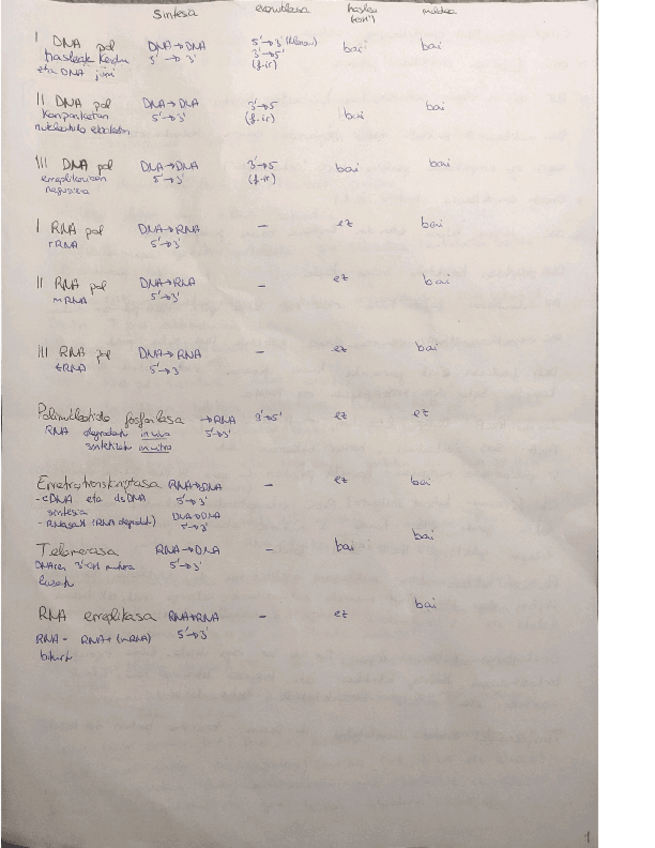 Sintesia exonukleasa haslea (OH') moldea
I DNA pol DNA→DNA 5'→3' (Klenow) bai bai
hasleak kendu 5'→3' 3'→5'
eta DNA (f.ir)
II DNA pol DNA→DNA 3'→5 bai bai
Konponketan 5'→3' (f.ir)
III DNA pol DNA→DNA 3'→5 bai bai
erreplikazioan 5'→3' (f-ir)
nagusiena
I RNA pol DNA→RNA – ez bai
rRNA 5'→3'
II RNA pol DNA→RNA – ez bai
mRNA 5'→3'
III RNA pol DNA→RNA – ez bai
tRNA 5'→3'
Polinukleotido fosforilasa →RNA 3'→5' ez ez
RNA degradatu in vivo 5'→3'
sintetizatu in vitro
Erretrotranskriptasa RNA→DNA – ez bai
- cDNA eta dsDNA 5'→3'
sintesia DNA→DNA
- RNAsa H (RNA degradatu) 5'→3'
Telomerasa RNA→DNA – bai bai
DNAren 3'-OH muturra 5'→3'
luzatu
RNA erreplikasa RNA→RNA – ez bai
RNA- RNA+ (mRNA) 5'→3'
bihurtu
1